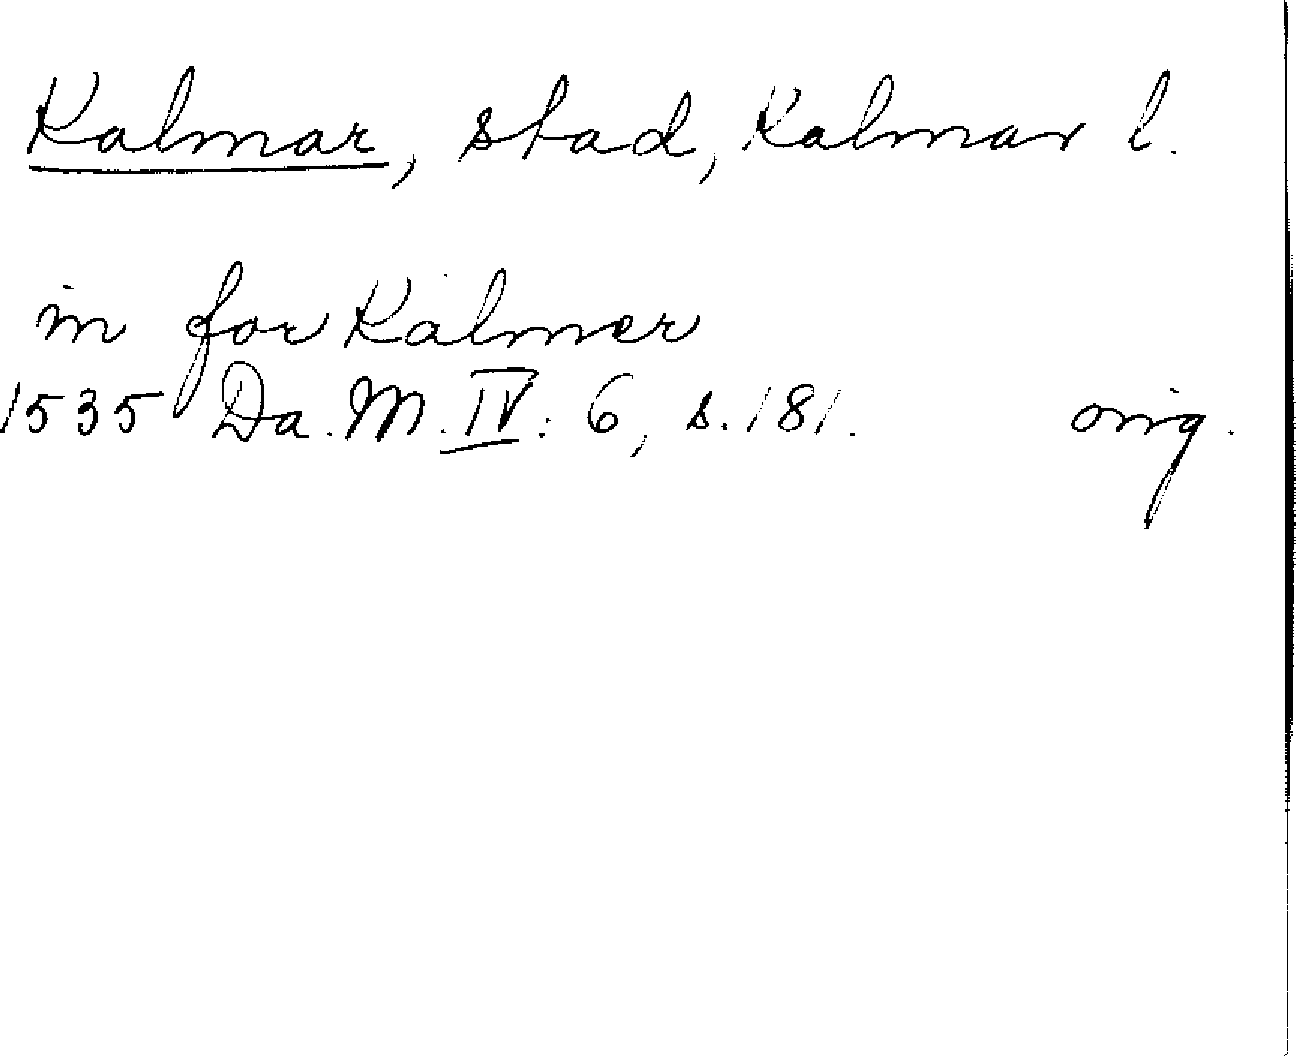 Kalmar, stad, Kalmar l.
in for Kalmer
1535 Da. M. IV: 6, s. 181. orig.